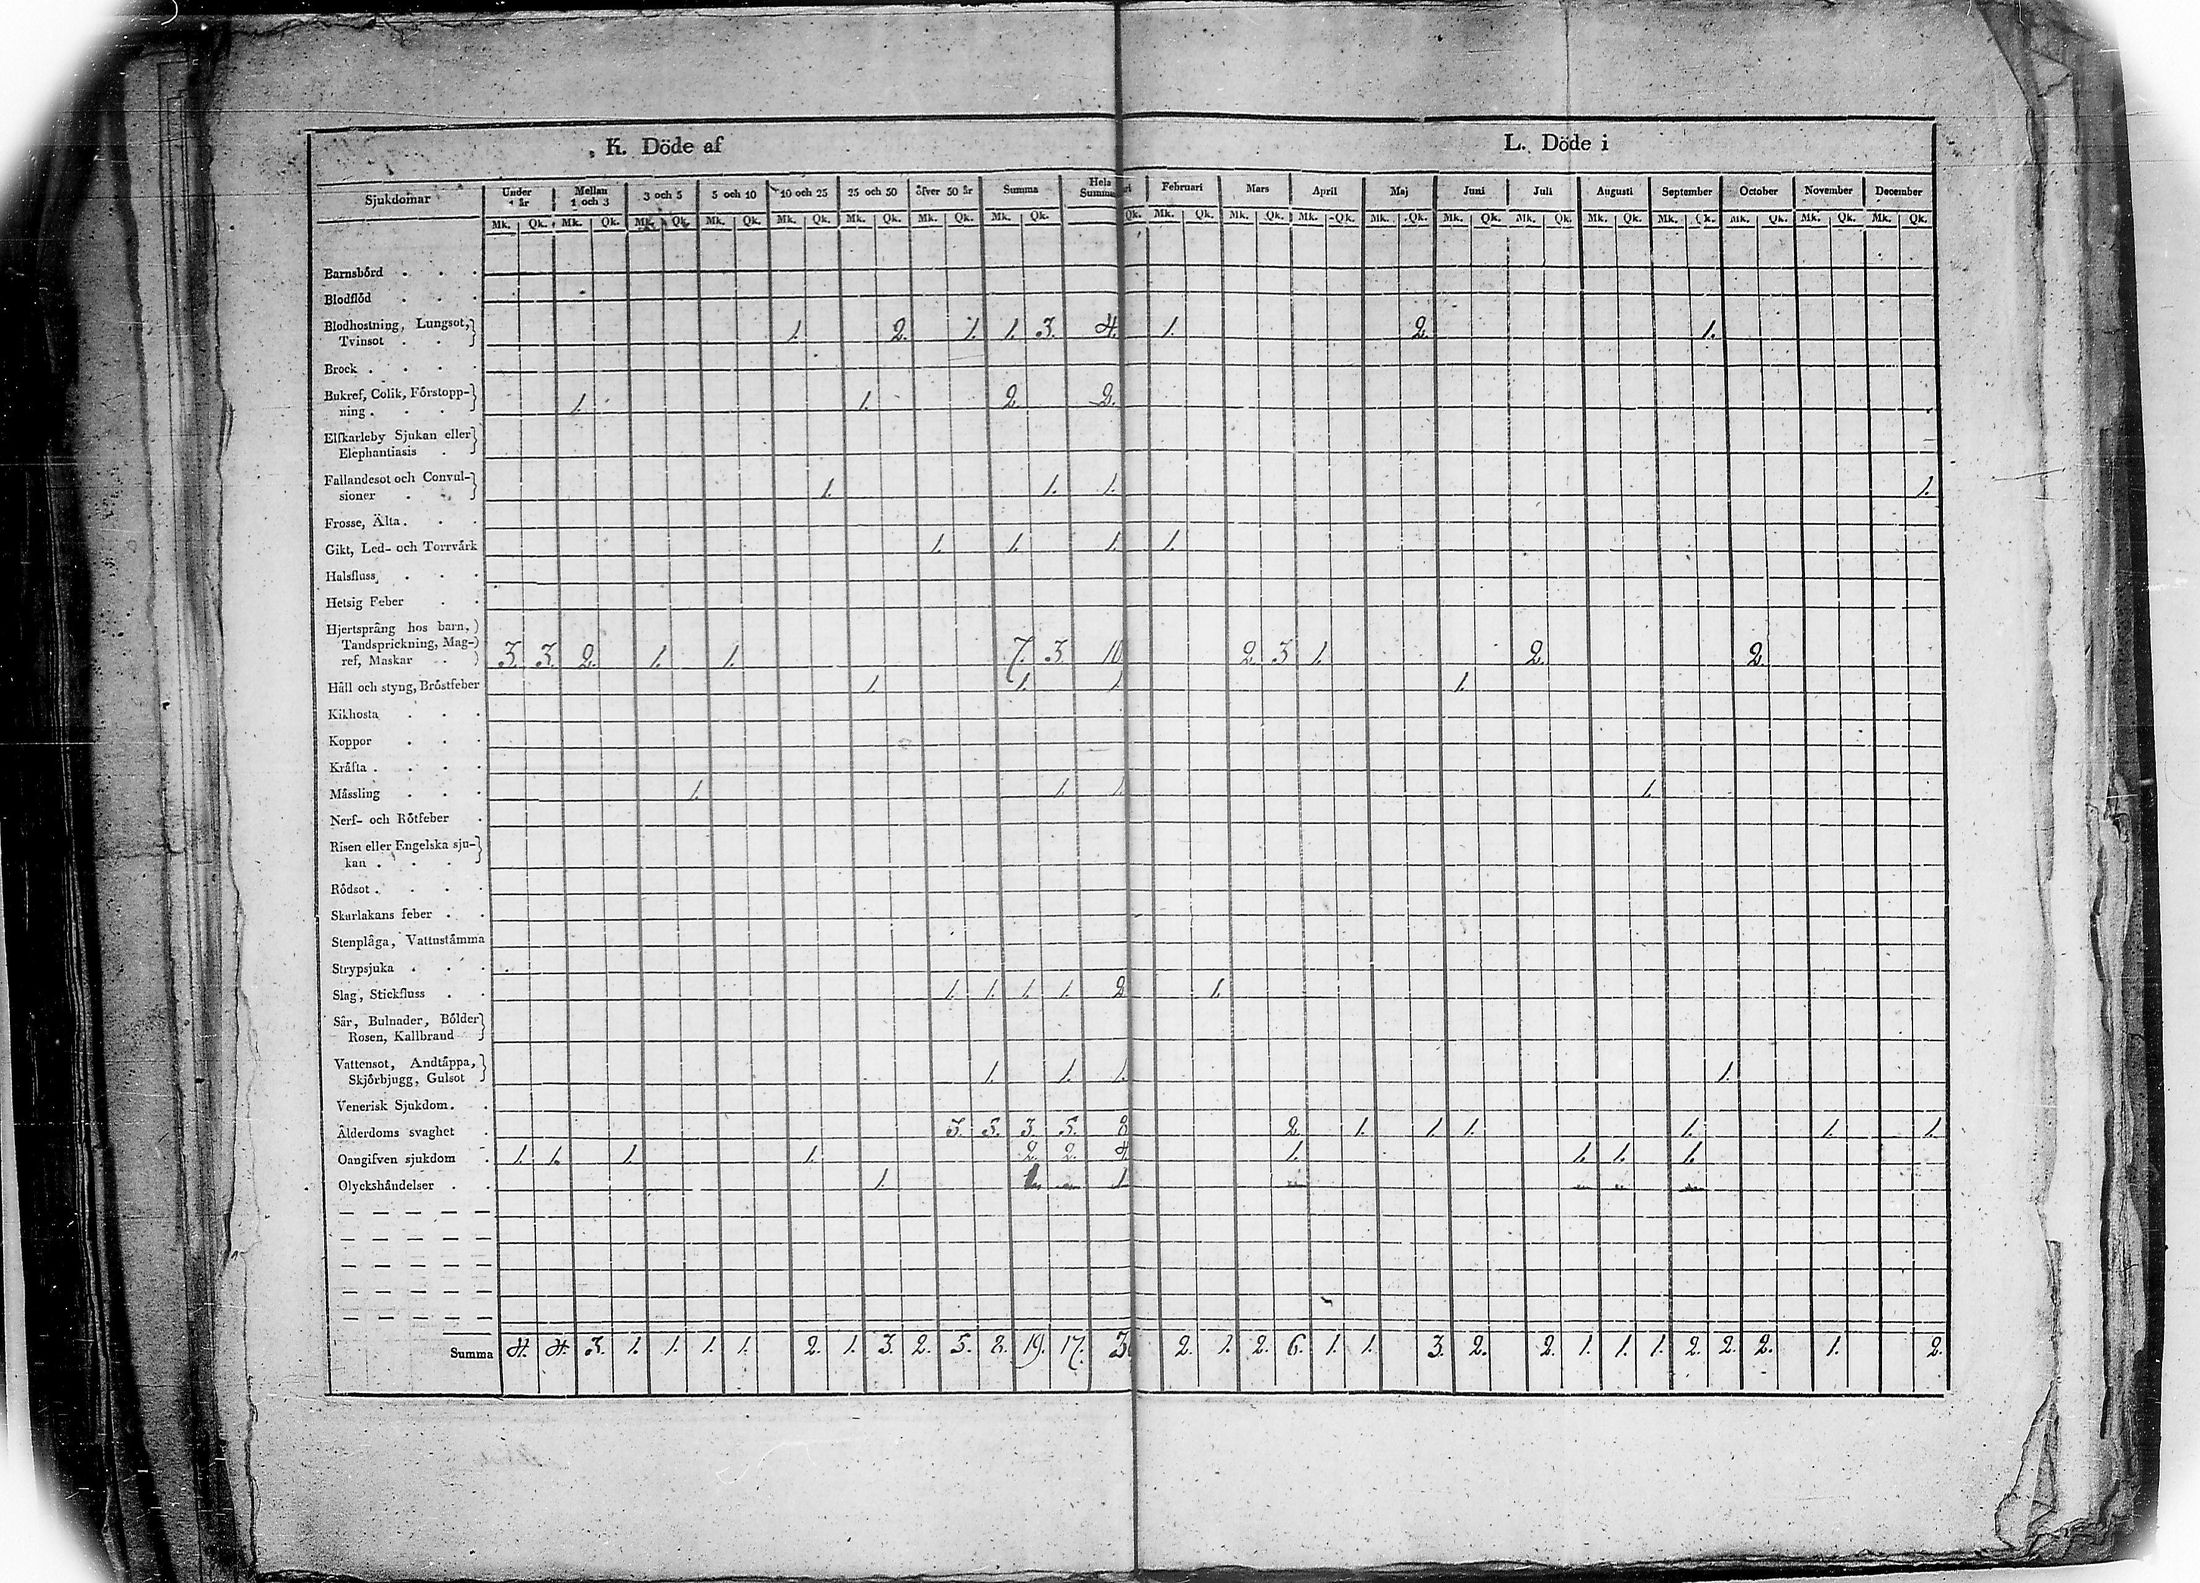 K. Döde af L. Döde i
Sjukdomar Under 1 år Mellan 1 och 3 3 och 5 5 och 10 10 och 25 25 och 50 öfver 50 år Summa Hela Summa ri Februari Mars April Maj Juni Juli Augusti September October November December
Mk. Qk. Mk. Qk. Mk. Qk. Mk. Qk. Mk. Qk. Mk. Qk. Mk. Qk. Mk. Qk. Qk. Mk. Qk. Mk. Qk. Mk. Qk. Mk. Qk. Mk. Qk. Mk. Qk. Mk. Qk. Mk. Qk. Mk. Qk. Mk. Qk. Mk. Qk.
Barnsbörd . . .
Blodflöd . . .
Blodhostning, Lungsot,
Tvinsot . . 1. 2. 1. 1. 3. 4. 1. 2. 1.
Brock . . . .
Bukref, Colik, Förstopp-
ning . . . . 1. 1. 2. 2.
Elfkarleby Sjukan eller
Elephantiasis .
Fallandesot och Convul-
sioner . . 1. 1. 1. 1.
Frosse, Älta . . .
Gikt, Led- och Torrvärk 1. 1. 1. 1.
Halsfluss . . .
Hetsig Feber . .
Hjertsprång hos barn,
Tandsprickning, Mag-
ref, Maskar . . 3. 3. 2. 1. 1. 7. 3. 10 2. 3. 1. 2. 2.
Håll och styng, Bröstfeber 1. 1. 1 1.
Kikhosta . . .
Koppor . . .
Kräfta . . . .
Mässling . . . 1. 1. 1 1.
Nerf- och Rötfeber .
Risen eller Engelska sju-
kan . . . .
Rödsot . . . .
Skarlakans feber . .
Stenplåga, Vattustämma
Strypsjuka . . .
Slag, Stickfluss . . 1. 1. 1. 1. 2 1.
Sår, Bulnader, Bölder
Rosen, Kallbrand
Vattensot, Andtäppa,
Skjörbjugg, Gulsot 1. 1. 1. 1.
Venerisk Sjukdom . .
Ålderdoms svaghet . 3. 5. 3. 5. 8 2. 1. 1. 1. 1. 1. 1.
Oangifven sjukdom . 1. 1. 1. 1. 2. 2. 4. 1. 1. 1. 1.
Olyckshändelser . . 1. 1 1
Summa 4. 4. 3. 1. 1. 1. 1. 2. 1. 3. 2. 5. 8. 19. 17. 3 2. 1. 2. 6. 1. 1. 3. 2. 2. 1. 1. 1. 2. 2. 2. 1. 2.